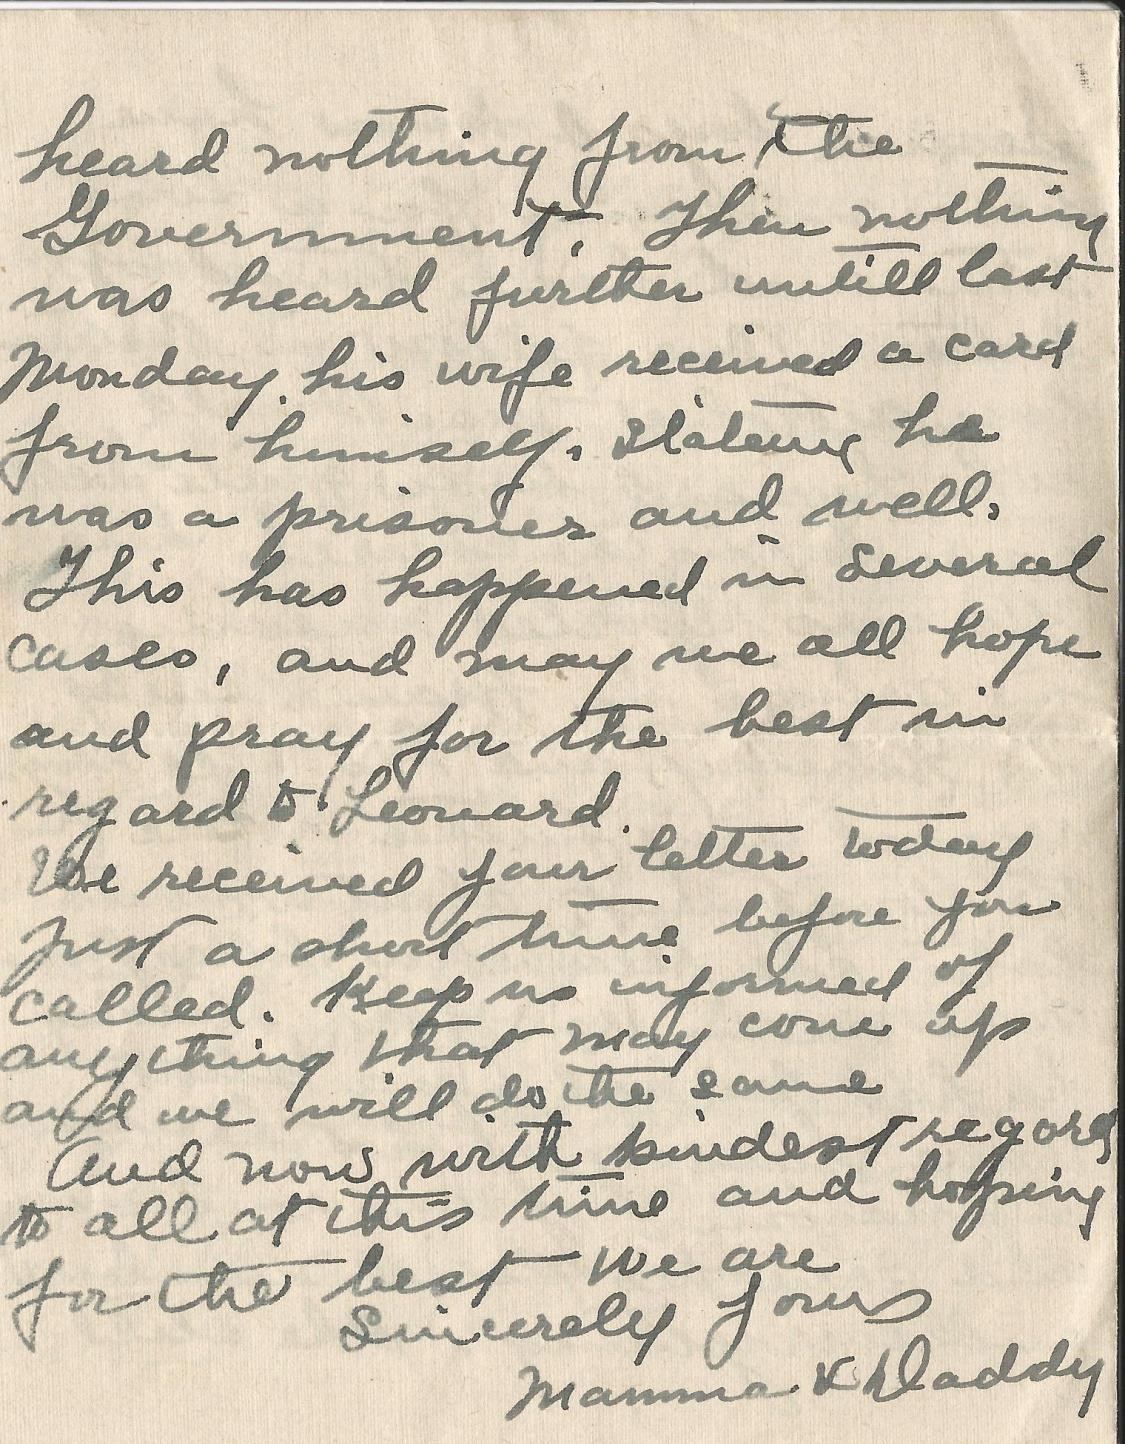 heard nothing from the
Government. Then nothing
was heard further untill last
Monday, his wife received a card
from himself. stateing he
was a prisoner and well.
This has happened in several
cases, and may we all hope
and pray for the best in
regard to Leonard.
We received your letter today
Just a short time before you
called. Keep us informed of
anything that may come up
and we will do the same
And now with kindest regards
to all at this time and hopeing
for the best we are
Sincerely Yours
Mamma & Daddy